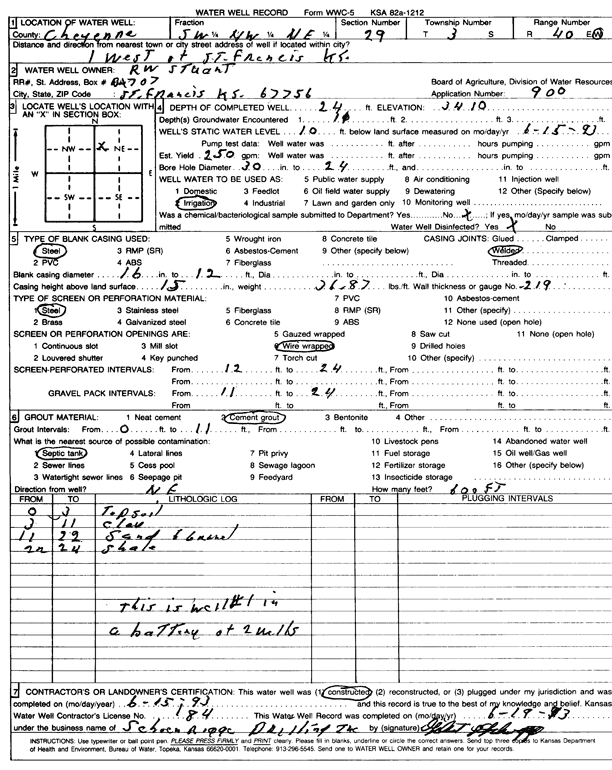 WATER WELL RECORD Form WWC-5 KSA 82a-1212
1 LOCATION OF WATER WELL: Fraction Section Number Township Number Range Number
County: Cheyenne SW ¼ NW ¼ NE ¼ 29 T 3 S R 40 E W
Distance and direction from nearest town or city street address of well if located within city?
1 West of St. Francis KS.
2 WATER WELL OWNER: RW Stuart
RR#, St. Address, Box # : BA707 Board of Agriculture, Division of Water Resources
City, State, ZIP Code : St. Francis KS. 67756 Application Number: 900
3 LOCATE WELL'S LOCATION WITH AN "X" IN SECTION BOX:
N
NW X NE
W E
SW SE
S
1 Mile
4 DEPTH OF COMPLETED WELL 24 ft. ELEVATION: 3410
Depth(s) Groundwater Encountered 1 10 ft. 2. ft. 3. ft.
WELL'S STATIC WATER LEVEL 10 ft. below land surface measured on mo/day/yr 6-15-93
Pump test data: Well water was ft. after hours pumping gpm
Est. Yield 250 gpm: Well water was ft. after hours pumping gpm
Bore Hole Diameter 30 in. to 24 ft., and in. to ft.
WELL WATER TO BE USED AS: 5 Public water supply 8 Air conditioning 11 Injection well
1 Domestic 3 Feedlot 6 Oil field water supply 9 Dewatering 12 Other (Specify below)
2 Irrigation 4 Industrial 7 Lawn and garden only 10 Monitoring well
Was a chemical/bacteriological sample submitted to Department? Yes No X ; If yes, mo/day/yr sample was submitted Water Well Disinfected? Yes X No
5 TYPE OF BLANK CASING USED: 5 Wrought iron 8 Concrete tile CASING JOINTS: Glued Clamped
1 Steel 3 RMP (SR) 6 Asbestos-Cement 9 Other (specify below) Welded
2 PVC 4 ABS 7 Fiberglass Threaded
Blank casing diameter 16 in. to 12 ft., Dia in. to ft., Dia in. to ft.
Casing height above land surface 15 in., weight 36.87 lbs./ft. Wall thickness or gauge No. .219
TYPE OF SCREEN OR PERFORATION MATERIAL: 7 PVC 10 Asbestos-cement
1 Steel 3 Stainless steel 5 Fiberglass 8 RMP (SR) 11 Other (specify)
2 Brass 4 Galvanized steel 6 Concrete tile 9 ABS 12 None used (open hole)
SCREEN OR PERFORATION OPENINGS ARE: 5 Gauzed wrapped 8 Saw cut 11 None (open hole)
1 Continuous slot 3 Mill slot 6 Wire wrapped 9 Drilled holes
2 Louvered shutter 4 Key punched 7 Torch cut 10 Other (specify)
SCREEN-PERFORATED INTERVALS: From 12 ft. to 24 ft., From ft. to ft.
From ft. to ft., From ft. to ft.
GRAVEL PACK INTERVALS: From 11 ft. to 24 ft., From ft. to ft.
From ft. to ft., From ft. to ft.
6 GROUT MATERIAL: 1 Neat cement 2 Cement grout 3 Bentonite 4 Other
Grout Intervals: From 0 ft. to 11 ft., From ft. to ft., From ft. to ft.
What is the nearest source of possible contamination: 10 Livestock pens 14 Abandoned water well
1 Septic tank 4 Lateral lines 7 Pit privy 11 Fuel storage 15 Oil well/Gas well
2 Sewer lines 5 Cess pool 8 Sewage lagoon 12 Fertilizer storage 16 Other (specify below)
3 Watertight sewer lines 6 Seepage pit 9 Feedyard 13 Insecticide storage
Direction from well? NE How many feet? 600 FT
FROM TO LITHOLOGIC LOG FROM TO PLUGGING INTERVALS
0 3 Topsoil
3 11 Clay
11 22 Sand & Gravel
22 24 Shale
This is well #1 in
a battery of 2 wells
7 CONTRACTOR'S OR LANDOWNER'S CERTIFICATION: This water well was (1) constructed, (2) reconstructed, or (3) plugged under my jurisdiction and was
completed on (mo/day/year) 6-15-93 and this record is true to the best of my knowledge and belief. Kansas
Water Well Contractor's License No. 184 This Water Well Record was completed on (mo/day/yr) 6-19-93
under the business name of Drilling Inc by (signature)
INSTRUCTIONS: Use typewriter or ball point pen. PLEASE PRESS FIRMLY and PRINT clearly. Please fill in blanks, underline or circle the correct answers. Send top three copies to Kansas Department
of Health and Environment, Bureau of Water, Topeka, Kansas 66620-0001. Telephone: 913-296-5545. Send one to WATER WELL OWNER and retain one for your records.